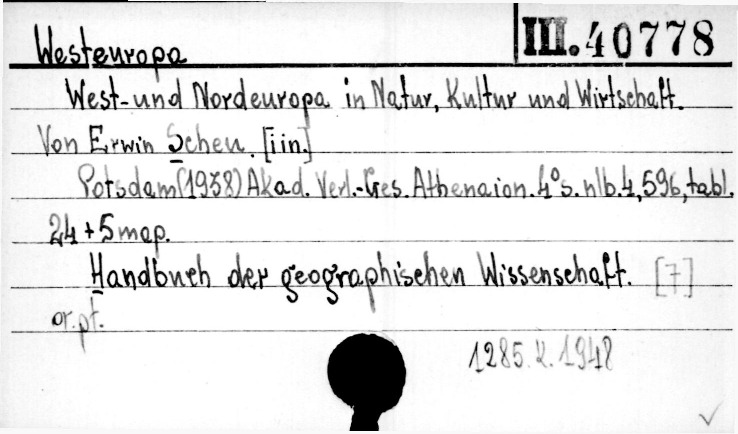 Westeuropa III. 40778
West- und Nordeuropa in Natur, Kultur und Wirtschaft.
Von Erwin Scheu. [iin.]
Potsdam (1938) Akad. Verl.-Ges. Athenaion. 4° s. nlb. 4, 596, tabl.
24 + 5 map.
Handbuch der geographischen Wissenschaft. [7]
or. pł.
1285. K. 1948